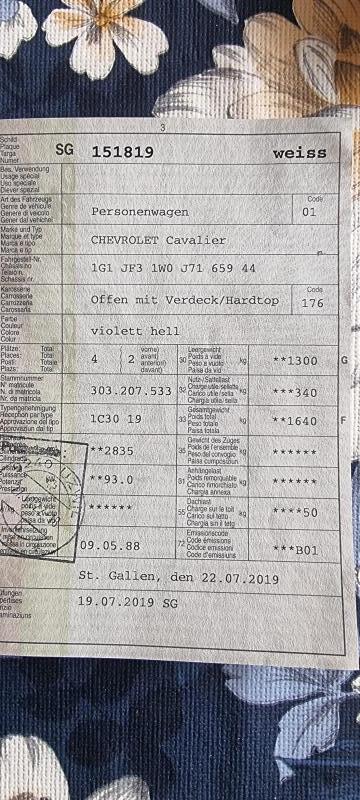 3
Schild
Plaque
Targa
Numer
SG 151819 weiss
Bes. Verwendung
Usage spécial
Uso speciale
Diever spezial
Art des Fahrzeugs
Genre de véhicule
Genere di veicolo
Gener dal vehichel
Code
Personenwagen 01
Marke und Typ
Marque et type
Marca e tipo
Marca e tip
CHEVROLET Cavalier
Fahrgestell-Nr.
Châssis no
Telaio n.
Schassis nr.
1G1 JF3 1W0 J71 659 44
Karosserie
Carrosserie
Carrozzeria
Carossaria
Code
Offen mit Verdeck/Hardtop 176
Farbe
Couleur
Colore
Colur
violett hell
Plätze: Total
Places: Total
Posti: Totale
Plazs: Total
4 ( 2
vorne)
avant)
anteriori)
davant)
30
Leergewicht
Poids à vide
Peso a vuoto
Paisa da vid
kg
**1300
G
Stammnummer
N° matricule
N. di matricola
Nr. da matricla
303.207.533
32
kg
***340
Typengenehmigung
Réception par type
Approvazione del tipo
Approvaziun dal tip
1C30 19
33
Gesamtgewicht
Poids total
Peso totale
Paisa totala
kg
**1640
F
**2835
Gewicht des Zuges
Poids de l'ensemble
Peso del convoglio
Paisa cumposiziun
kg
******
**93.0
31
Anhängelast
Poids remorquable
Carico rimorchiato
Chargia annexa
kg
******
Leergewicht
poids à vide
peso a vuoto
paisa da vid
******
55
Dachlast
Charge sur le toit
Carico sul tetto
Chargia sin il tetg
kg
****50
09.05.88
72
Emissionscode
Code émissions
Codice emissioni
Code d'emissiuns
***B01
St. Gallen, den 22.07.2019
19.07.2019 SG